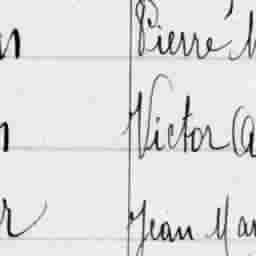 Pierre M
Victor A
Jean Mar